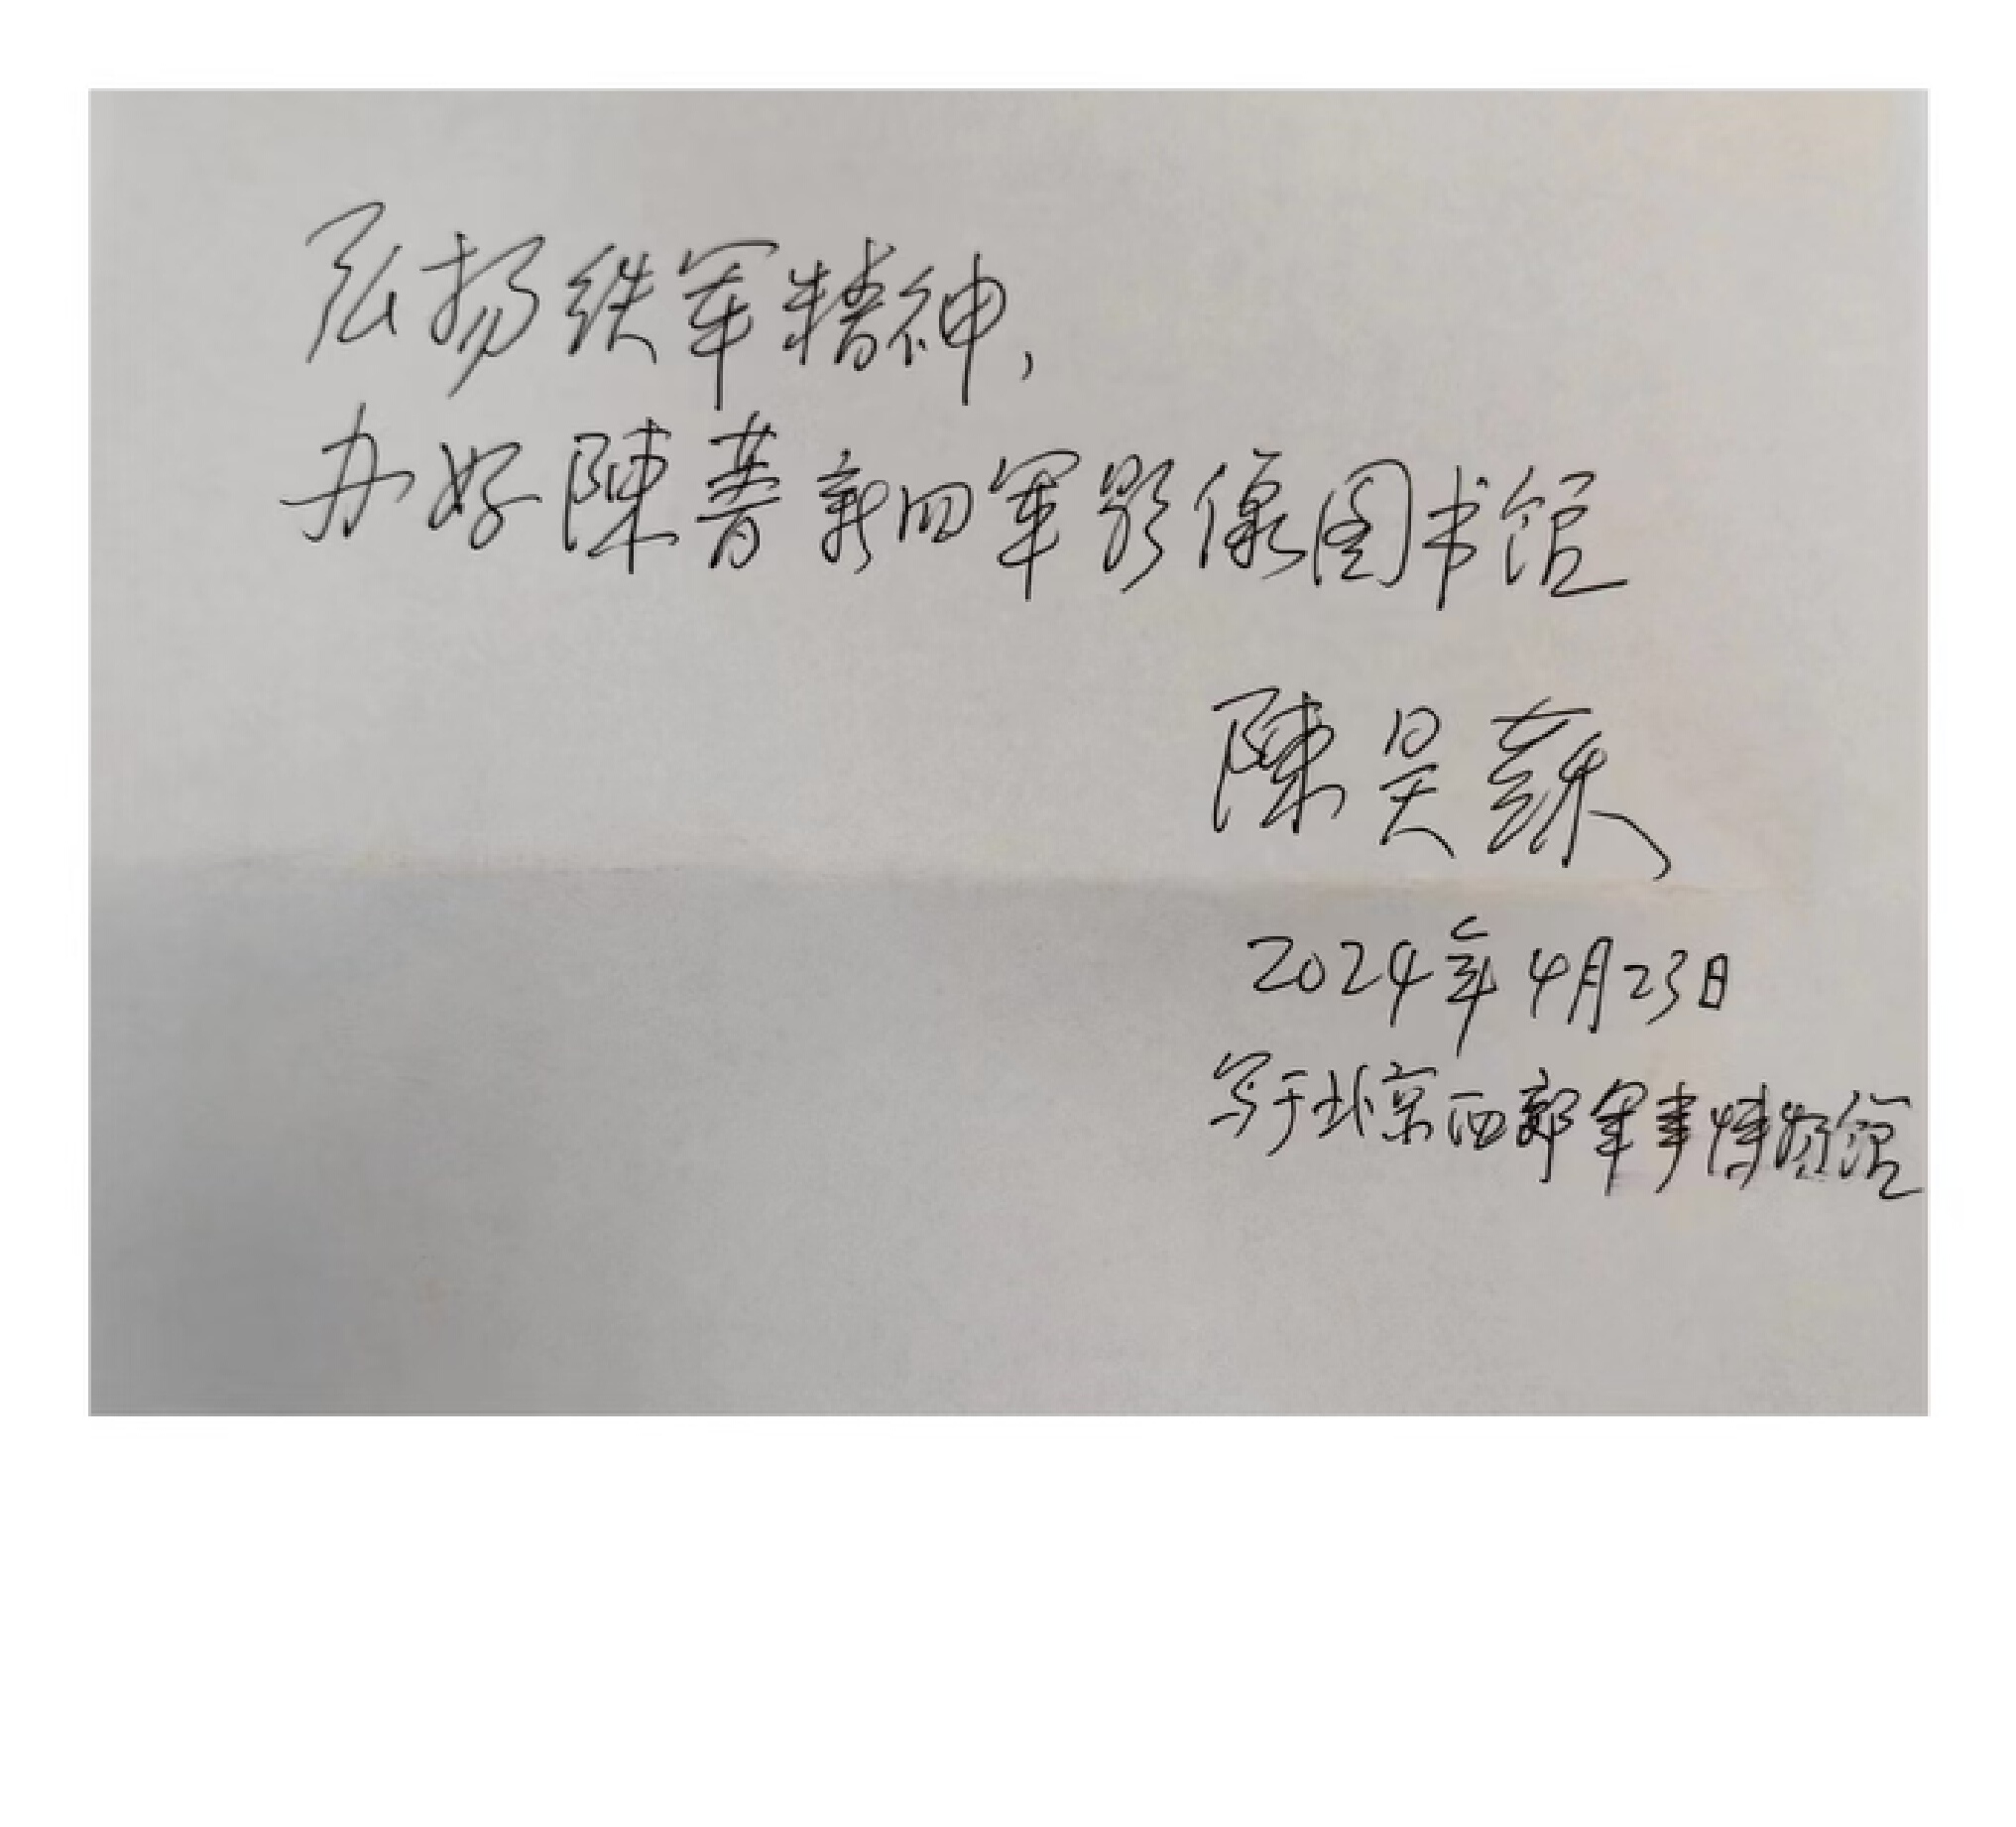 弘扬铁军精神，
办好陳菁新四军影像图书馆
陳昊蘇
2024年4月23日
写于北京西郊军事博物馆